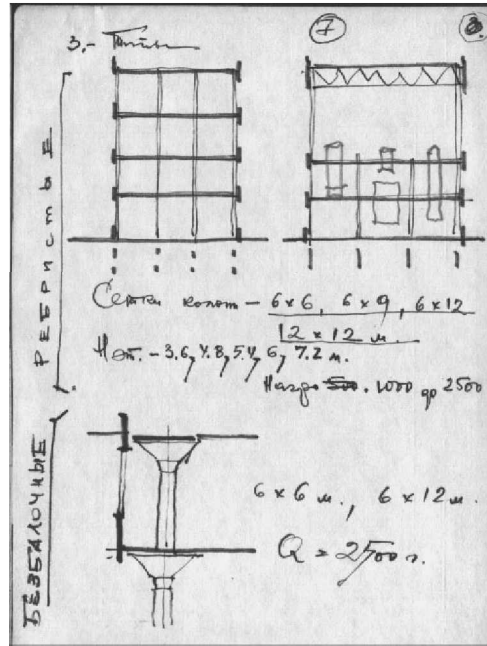 3.- Типы
7
8.
РЕБРИСТЫЕ
Сетки колонн - 6 x 6, 6 x 9, 6 x 12
12 x 12 м.
Нэт. - 3.6, 4.8, 5.4, 6, 7.2 м.
500. 1000 до 2500
БЕЗБАЛОЧНЫЕ
6 x 6 м., 6 x 12 м.
Q = 2500